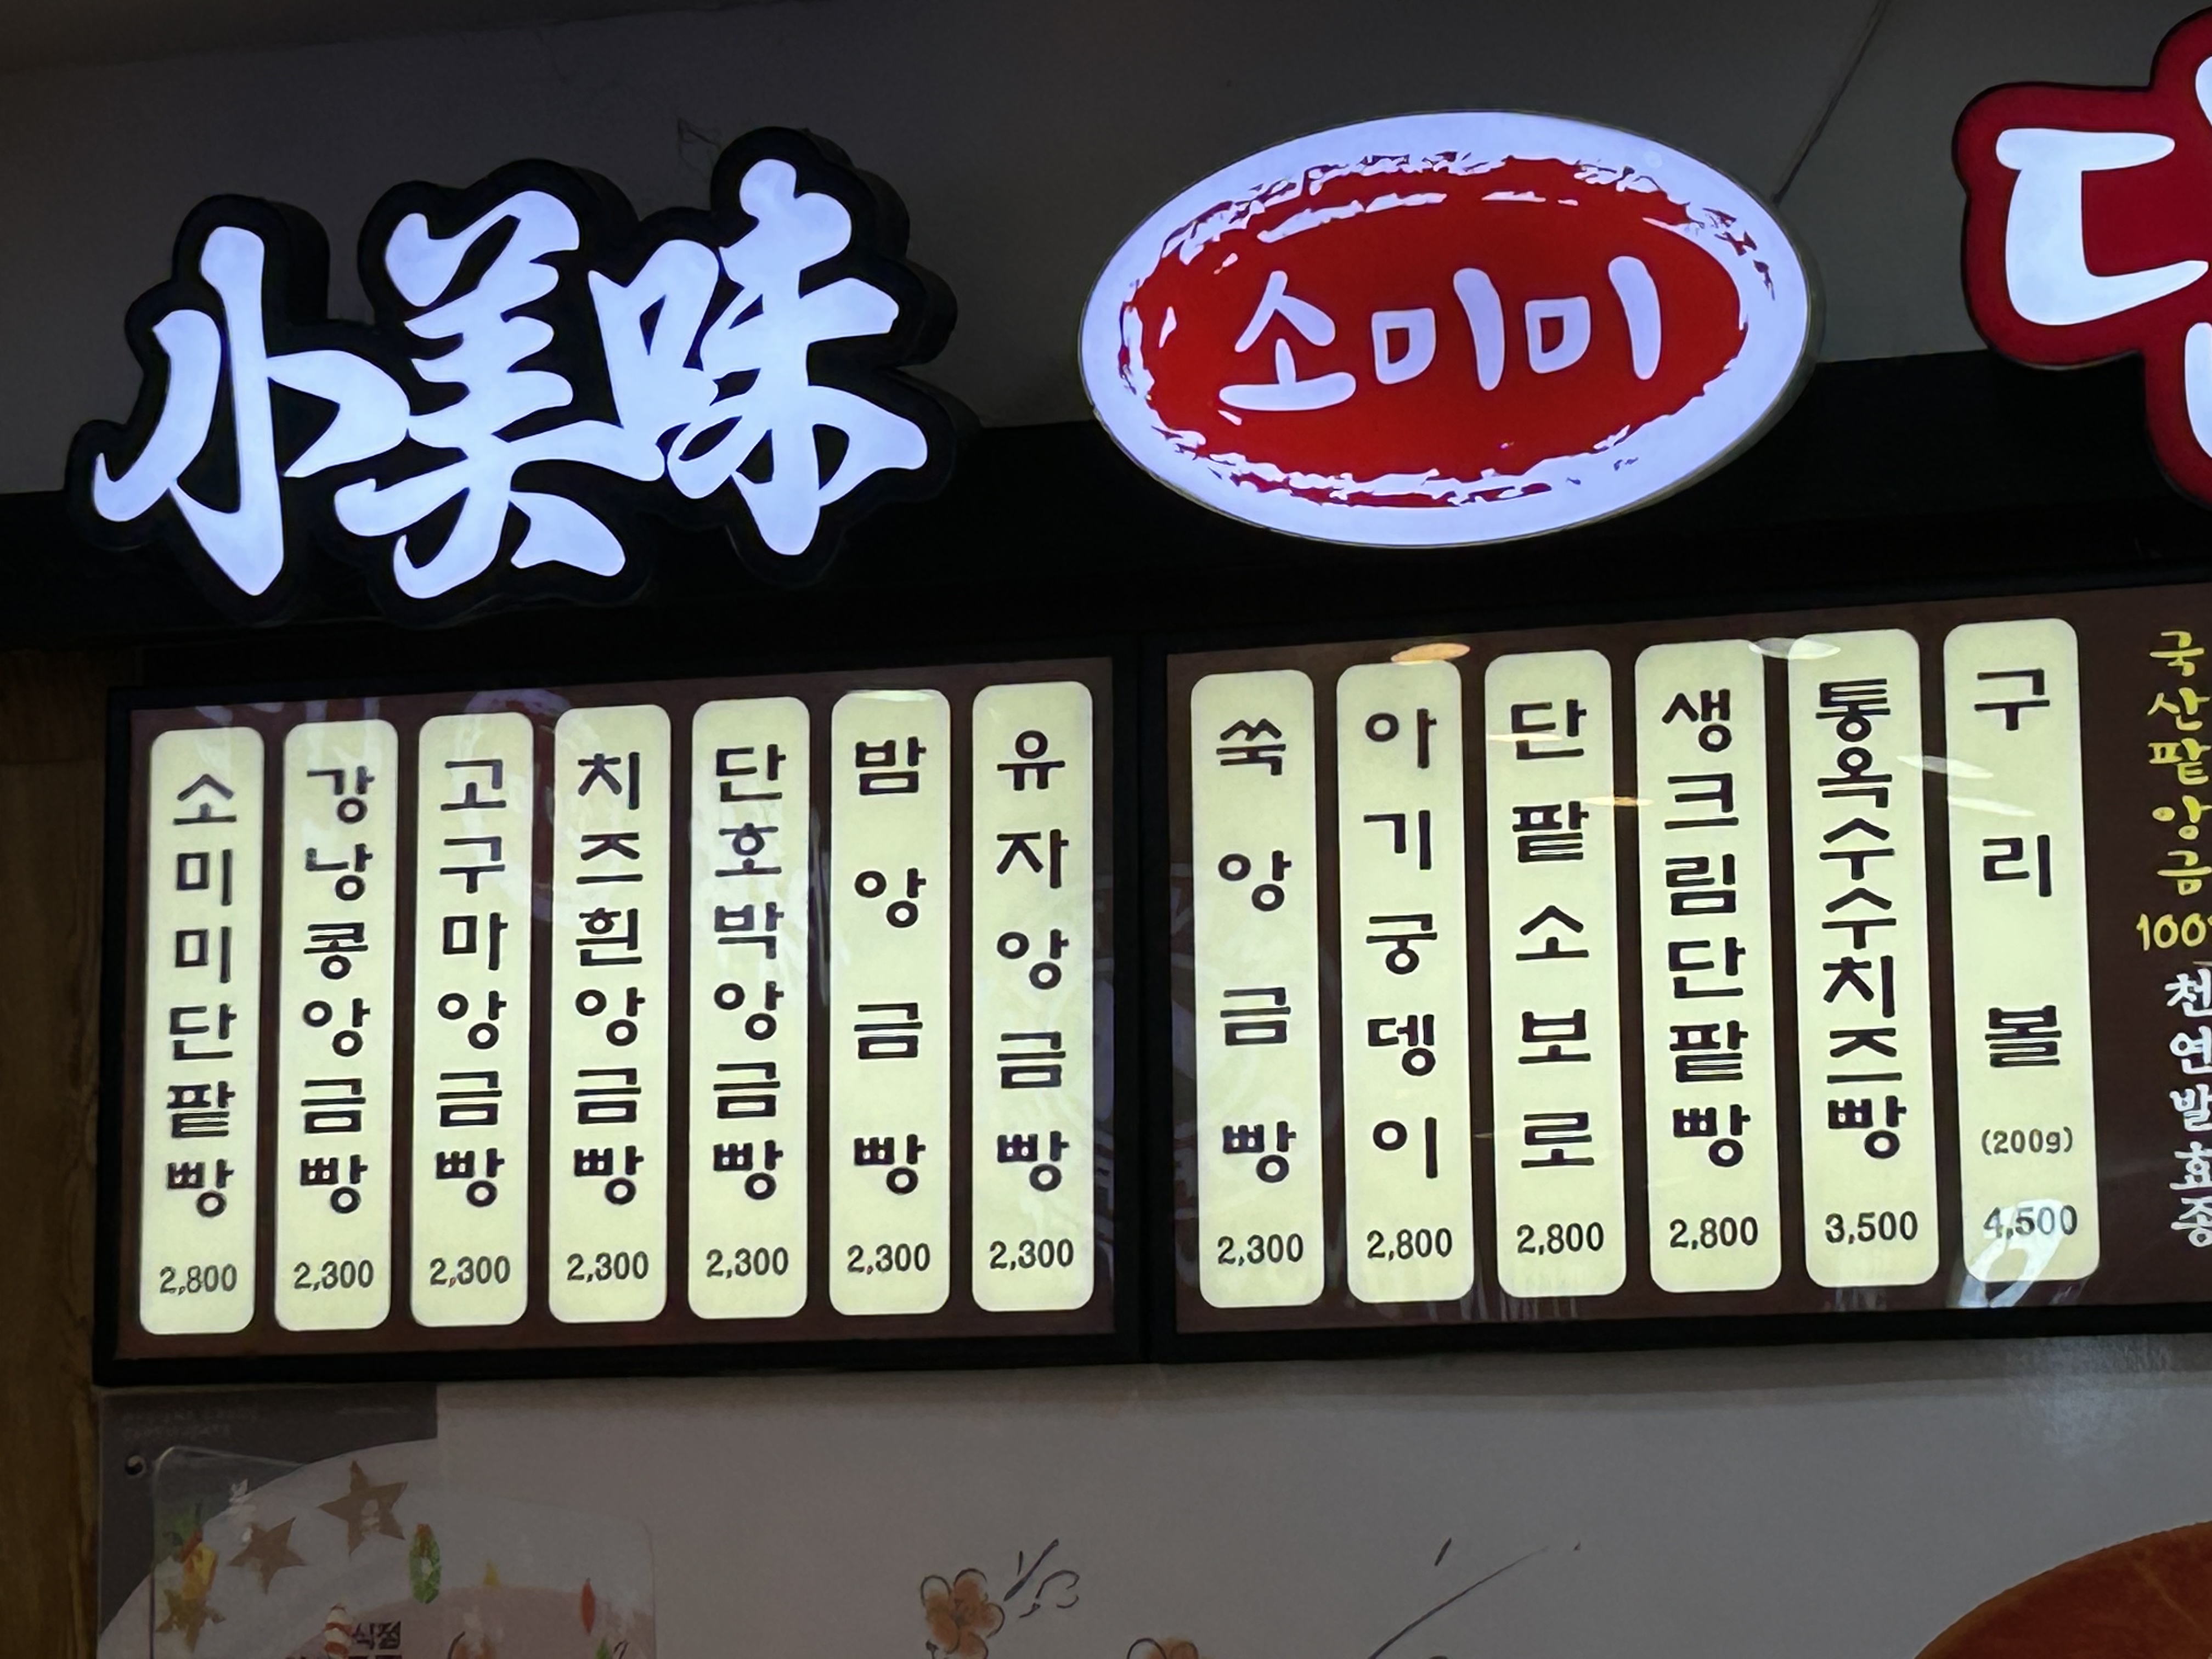 小美味
소미미
소미미단팥빵
2,800
강낭콩앙금빵
2,300
고구마앙금빵
2,300
치즈흰앙금빵
2,300
단호박앙금빵
2,300
밤앙금빵
2,300
유자앙금빵
2,300
쑥앙금빵
2,300
아기궁뎅이
2,800
단팥소보로
2,800
생크림단팥빵
2,800
통옥수수치즈빵
3,500
구리볼
(200g)
4,500
국산팥앙금
100
천연발효종